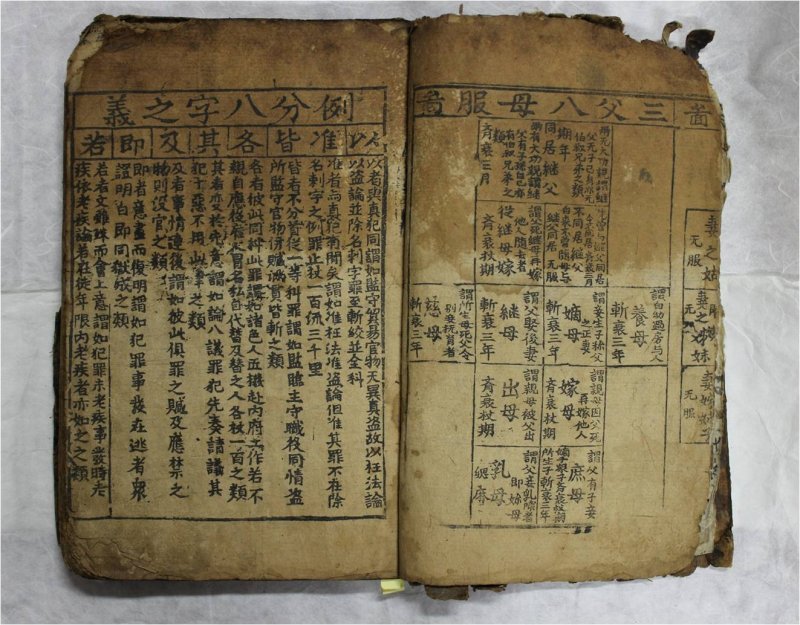 啚
妻之姑
无服
妻之姊妹
无服
无服
三父八母服啚
兩无大功親謂繼
父无子己身亦无
伯叔兄弟之類
期年
同居繼父
兩有大功親謂繼
父有子孫自己亦
有伯叔兄弟之
類
齊衰三月
不同居繼父
自來不曾隨母與
繼父同居 无服
謂父死繼母再嫁
他人隨去者
從繼母嫁
齊衰杖期
謂自幼過房与人
養母
斬衰三年
謂妾生子稱父
之正妻
嫡母
斬衰三年
謂父娶後妻
繼母
斬衰三年
謂所生母死父令
別妾撫育者
慈母
斬衰三年
謂親母因父死
再嫁他人
嫁母
齊衰杖期
謂親母被父出
出母
齊衰杖期
謂父有子妾
嫡子眾子齊衰杖期
所生子斬衰三年
庶母
謂父妾乳哺者
即妳母
乳母
緦麻
例分八字之義
以
准
皆
各
其
及
即
若
以者與真犯同謂如監守貿易官物无異真盜故以枉法論
以盜論並除名刺字罪至斬絞並全科
准者與真犯有間矣謂如准枉法准盜論但准其罪不在除
名刺字之例罪止杖一百流三千里
皆者不分首從一等科罪謂如監臨主守職役同情盜
所監守官物併贓滿貫皆斬之類
各者彼此同科此罪謂如諸色人匠撥赴內府工作若不
親自應役雇人冒名私自代替及替之人各杖一百之類
其者變於先意謂如論八議罪犯先奏請議其
犯十惡不用此律之類
及者事情連後謂如彼此俱罪之贓及應禁之
物則沒官之類
即者意盡而復明謂如犯罪事發在逃者眾
證明白即同獄成之類
若者文雖殊而會上意謂如犯罪未老疾事發時老
疾依老疾論若在徒年限內老疾者亦如之之類